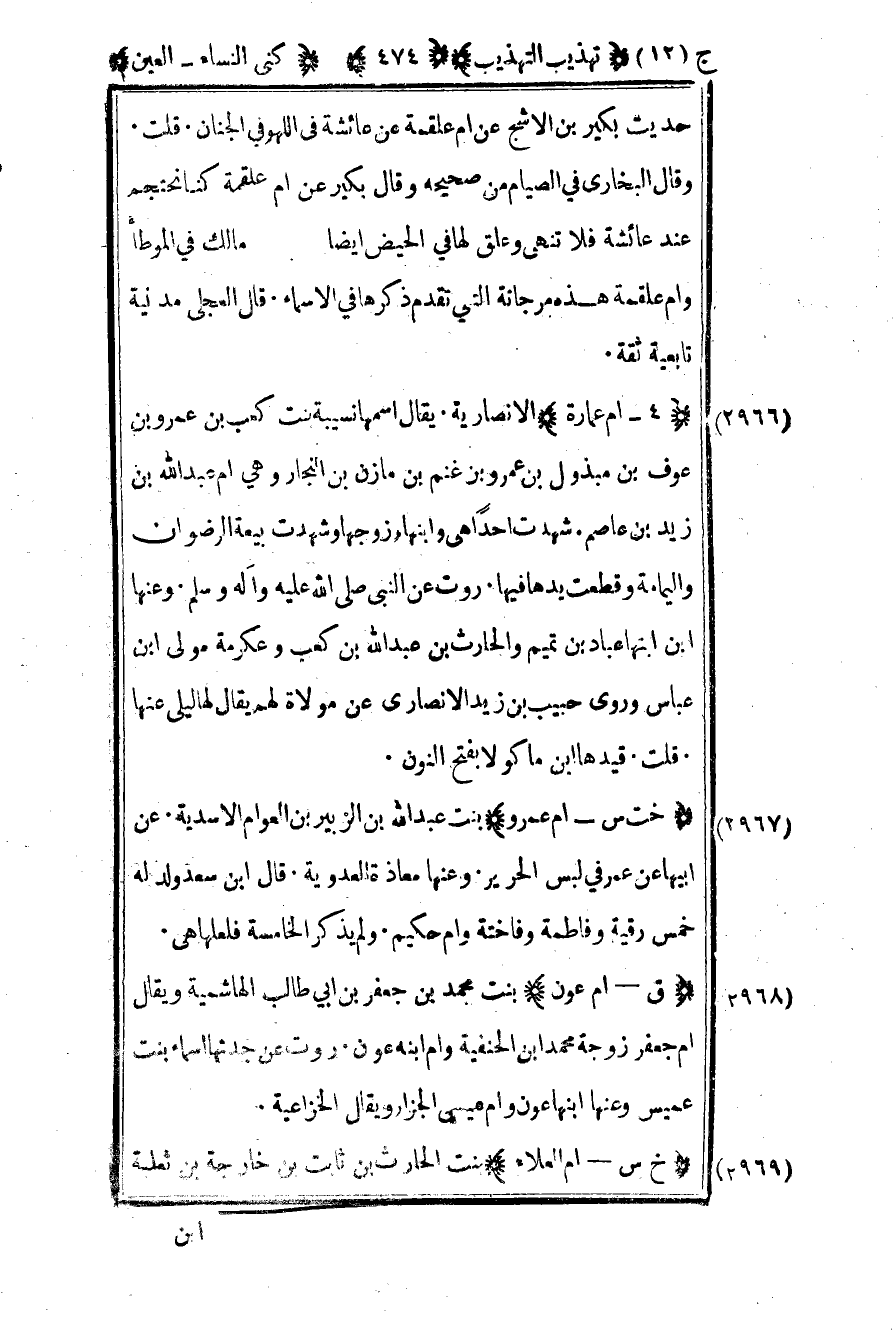 ج (١٢) ﴿ تهذيب التهذيب ﴾ ﴿ ٤٧٤ ﴾ ﴿ كنى النساء ـ العين ﴾
حديث بكير بن الاشج عن ام علقمة عن عائشة فى اللهو في الجنان ٠ قلت ٠
وقال البخارى في الصيام من صحيحه وقال بكير عن ام علقمة كنا نحتجم
عند عائشة فلا تنهى وعلق لها في الحيض ايضا مالك في الموطأ
وام علقمة هذه مرجانة التي تقدم ذكرها في الاسماء ٠ قال العجلى مدنية
تابعية ثقة ٠
(٢٩٦٦) ﴿ ٤ ـ ام عمارة ﴾ الانصارية ٠ يقال اسمها نسيبة بنت كعب بن عمرو بن
عوف بن مبذول بن عمرو بن غنم بن مازن بن النجار وهي ام عبدالله بن
زيد بن عاصم ٠ شهدت احدًا هى وابنها وزوجها وشهدت بيعة الرضوان
واليمامة وقطعت يدها فيها ٠ روت عن النبى صلى الله عليه وآله وسلم ٠ وعنها
ابن ابنها عباد بن تميم والحارث بن عبدالله بن كعب وعكرمة مولى ابن
عباس وروى حبيب بن زيد الانصارى عن مولاة لهم يقال لها ليلى عنها
٠ قلت ٠ قيدها ابن ماكولا بفتح النون ٠
(٢٩٦٧) ﴿ خت س ـ ام عمرو ﴾ بنت عبدالله بن الزبير بن العوام الاسدية ٠ عن
ابيها عن عمر في لبس الحرير ٠ وعنها معاذة العدوية ٠ قال ابن سعد ولد له
خمس رقية وفاطمة وفاختة وام حكيم ٠ ولم يذكر الخامسة فلعلها هى ٠
(٢٩٦٨) ﴿ ق — ام عون ﴾ بنت محمد بن جعفر بن ابي طالب الهاشمية ويقال
ام جعفر زوجة محمد ابن الحنفية وام ابنه عون ٠ روت عن جدتها اسماء بنت
عميس وعنها ابنها عون وام عيسى الجزار ويقال الخزاعية ٠
(٢٩٦٩) ﴿ خ س — ام العلاء ﴾ بنت الحارث بن ثابت بن خارجة بن ثعلبة
ابن